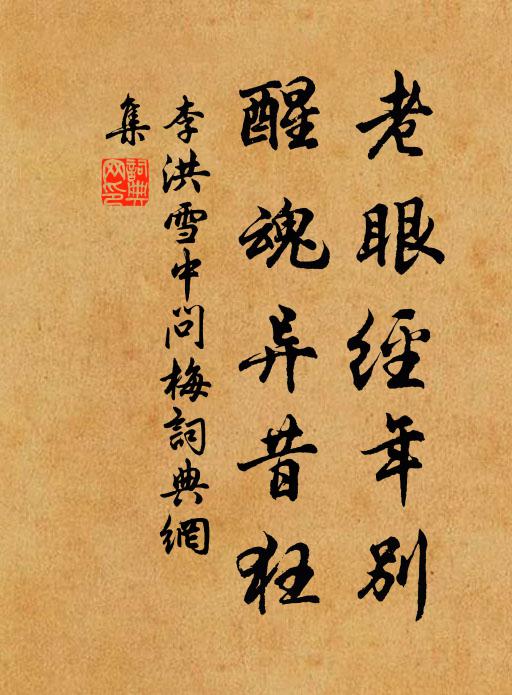 老眼經年別
醒魂异昔狂
李洪雪中問梅詞典網
集
詞典網印